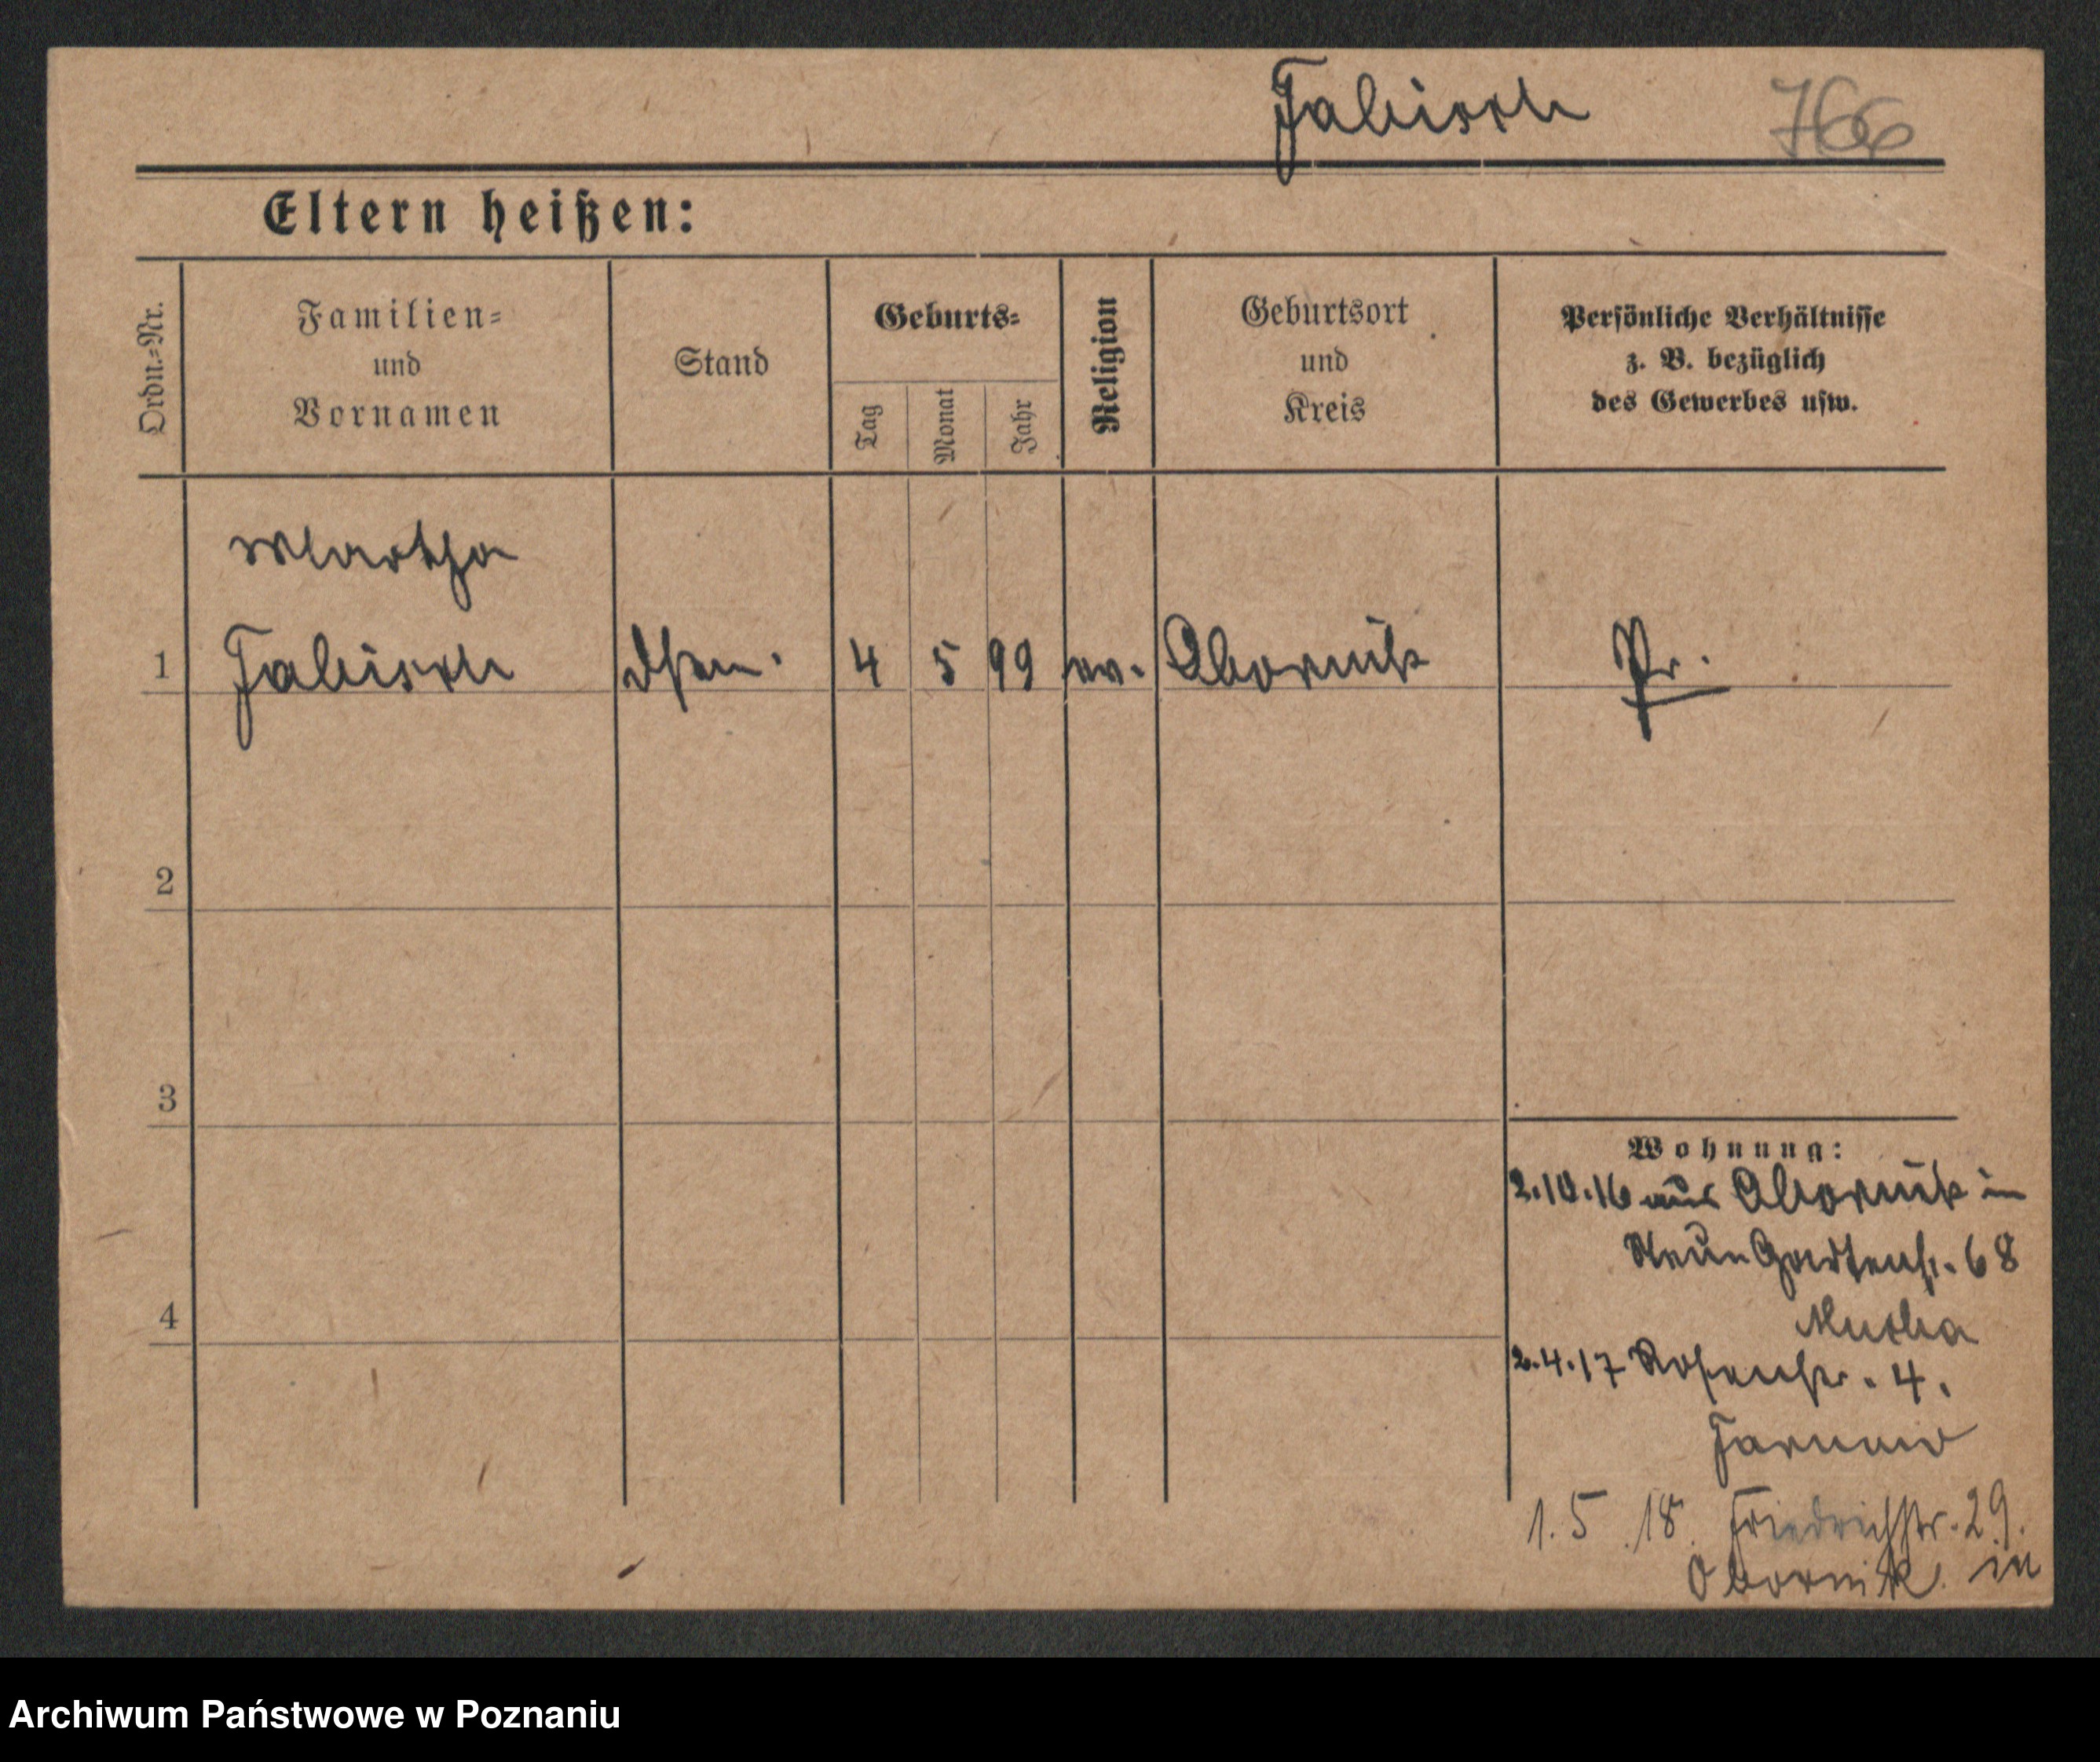 Fabisch 766
Eltern heißen:
Ordn.=Nr.
Familien=
und
Vornamen
Stand
Geburts=
Tag
Monat
Jahr
Religion
Geburtsort
und
Kreis
Persönliche Verhältnisse
z. B. bezüglich
des Gewerbes usw.
Martha
1 Fabisch 4 5 99 ev. Obornik Pr.
2
3
4
Wohnung:
2.10.16 aus Obornik in
Neue Gartenstr. 68
2.4.17 Rosenstr. 4.
1.5.18. Friedrichstr. 29.
Obornik. in
Archiwum Państwowe w Poznaniu